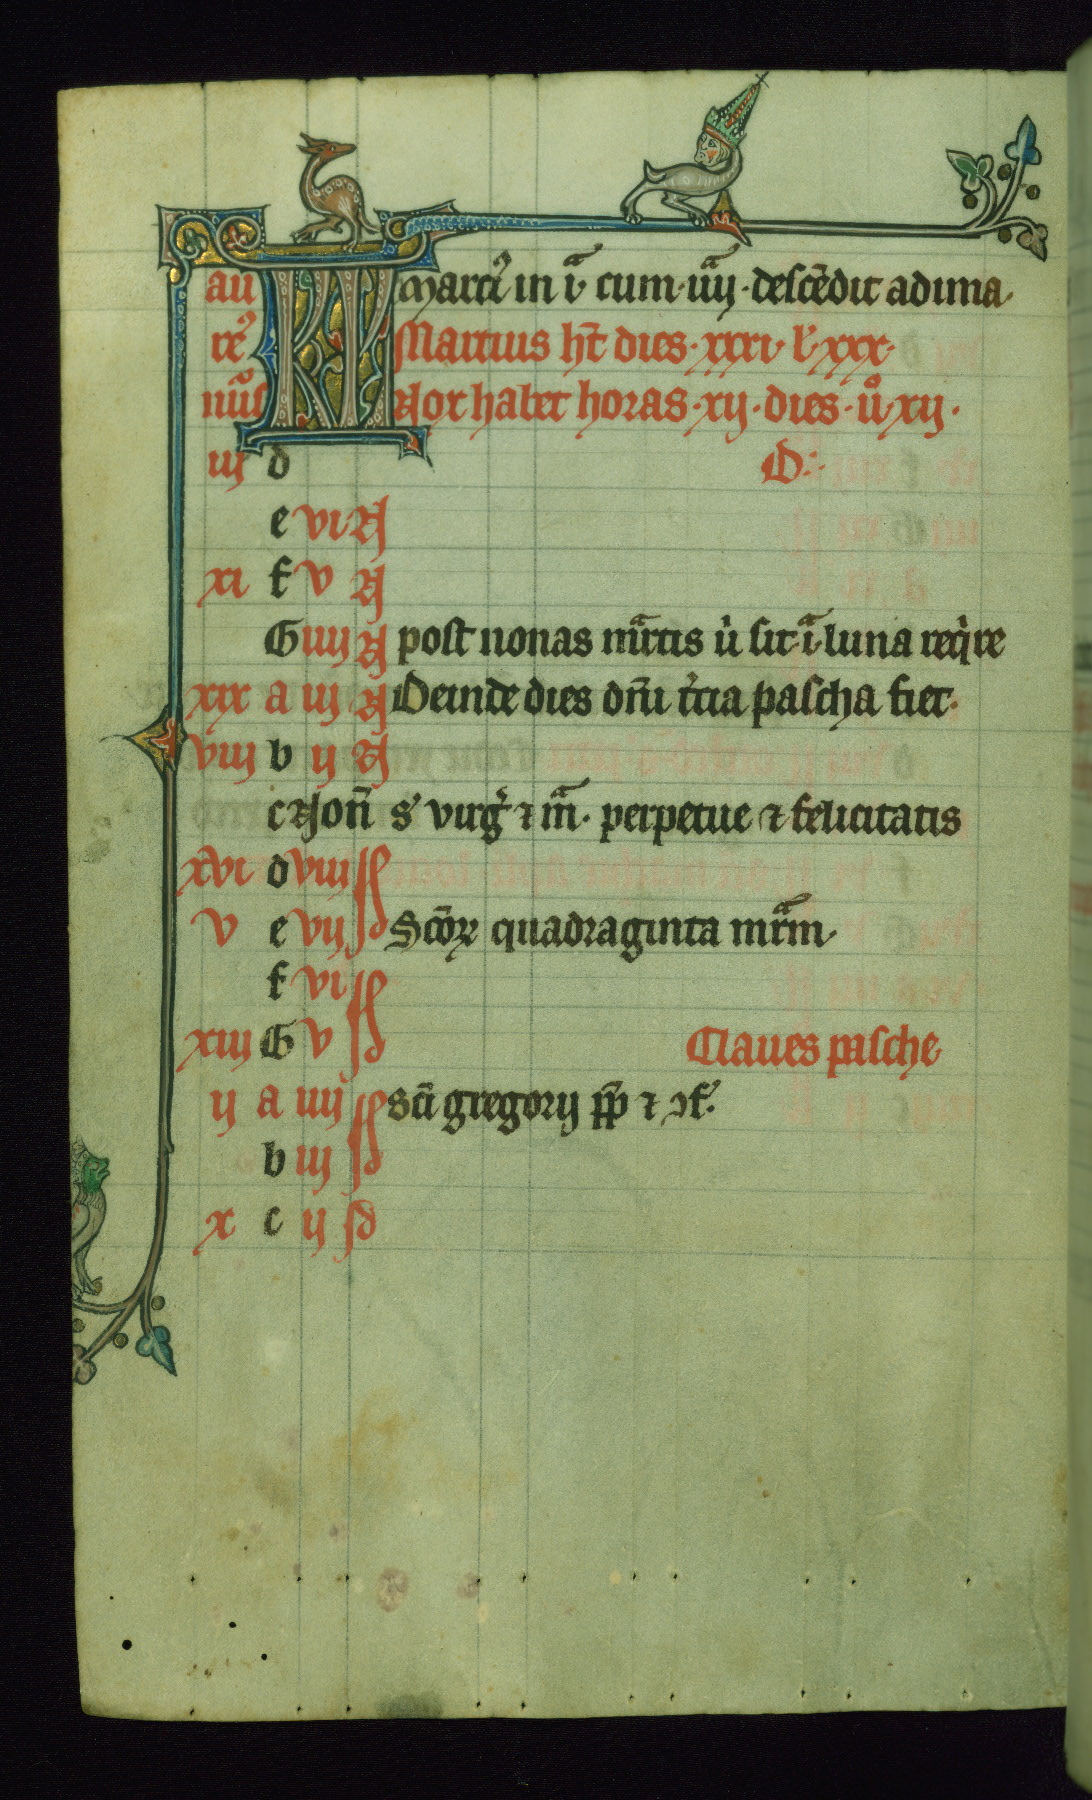 au KL Marcꝰ in i͛ cum · iiij · desce̅dit ad ima ·
reꝰ Martius ht̅ dies · xxxi · l' xxx ·
nu͛s Nox habet horas · xij · dies · u͛ xij ·
iij d D ·
e vi N
xi f v N
G iiij N post nonas mr̅tis u͛ sit · i · luna req͛re
xix a iij N Deinde dies dn̅i t͛cia pascha fiet ·
viij b ij N
c Non̅ s' virg͛ ⁊ m̅ · perpetue ⁊ felicitatis
xvi d viij Jd
v e vij Jd Sc̅oꝝ quadraginta mr̅m ·
f vi Jd
xiij G v Jd Claues pasche
ij a iiij Jd Sc̅i gregorij pp̅ ⁊ ↄf' ·
b iij Jd
x c ij Jd